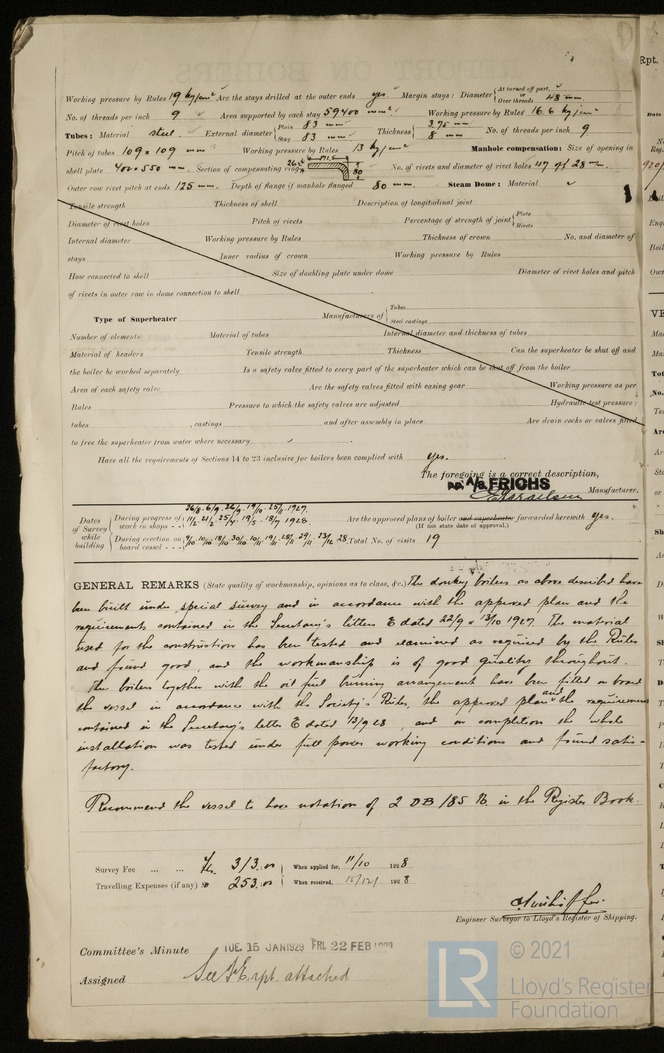 Working pressure by Rules 19 kg/cm² Are the stays drilled at the outer ends yes. Margin stays: Diameter { At turned off part, or Over threads 48 mm
No. of threads per inch 9 Area supported by each stay 59400 mm² Working pressure by Rules 16.6 kg/cm²
Tubes: Material steel. External diameter { Plain 83 mm Stay 83 mm Thickness { 3.75 mm 8 mm No. of threads per inch 9
Pitch of tubes 109 x 109 mm Working pressure by Rules 13 kg/cm² Manhole compensation: Size of opening in
shell plate 400 x 550 mm. Section of compensating ring 26 80 No. of rivets and diameter of rivet holes 47 of 28 mm.
Outer row rivet pitch at ends 125 mm. Depth of flange if manhole flanged 80 mm Steam Dome: Material
Tensile strength Thickness of shell Description of longitudinal joint
Diameter of rivet holes Pitch of rivets Percentage of strength of joint { Plate Rivets
Internal diameter Working pressure by Rules Thickness of crown No. and diameter of
stays Inner radius of crown Working pressure by Rules
How connected to shell Size of doubling plate under dome Diameter of rivet holes and pitch
of rivets in outer row in dome connection to shell
Type of Superheater Manufacturers of { Tubes Steel castings
Number of elements Material of tubes Internal diameter and thickness of tubes
Material of headers Tensile strength Thickness Can the superheater be shut off and
the boiler be worked separately Is a safety valve fitted to every part of the superheater which can be shut off from the boiler
Area of each safety valve Are the safety valves fitted with easing gear Working pressure as per
Rules Pressure to which the safety valves are adjusted Hydraulic test pressure:
tubes , castings and after assembly in place Are drain cocks or valves fitted
to free the superheater from water where necessary
Have all the requirements of Sections 14 to 23 inclusive for boilers been complied with yes.
The foregoing is a correct description,
pp. A/S FRICHS
Manufacturer.
Dates of Survey while building
During progress of work in shops - - 26/8. 6/9. 26/9. 19/10. 25/11. 1927.
11/2. 21/2. 25/4. 19/5. 18/7 1928.
Are the approved plans of boiler and superheater forwarded herewith yes.
(If not state date of approval.)
During erection on board vessel - - - 9/10 10/10 18/10 30/10 10/11 19/11 28/11 29/11 23/12 28. Total No. of visits 19
GENERAL REMARKS (State quality of workmanship, opinions as to class, &c.) The donkey boilers as above described have
been built under special survey and in accordance with the approved plan and the
requirements contained in the Secretary's letters E dated 22/9 & 13/10 1927. The material
used for the construction has been tested and examined as required by the Rules
and found good, and the workmanship is of good quality throughout.
The boilers together with the oil fuel burning arrangement have been fitted on board
the vessel in accordance with the Society's Rules, the approved plan and the requirements
contained in the Secretary's letter E dated 13/9 28, and on completion the whole
installation was tested under full power working conditions and found satis-
factory.
Recommend the vessel to have notation of 2 DB 185 lb. in the Register Book.
Survey Fee ... ... Kr. 313.00 When applied for, 11/10 1928
Travelling Expenses (if any) 253.00 When received, 15/12/ 1928
Engineer Surveyor to Lloyd's Register of Shipping.
Committee's Minute TUE. 15 JAN 1929 FRI. 22 FEB 1929
Assigned See F.E. rpt. attached
LR
© 2021
Lloyd's Register
Foundation